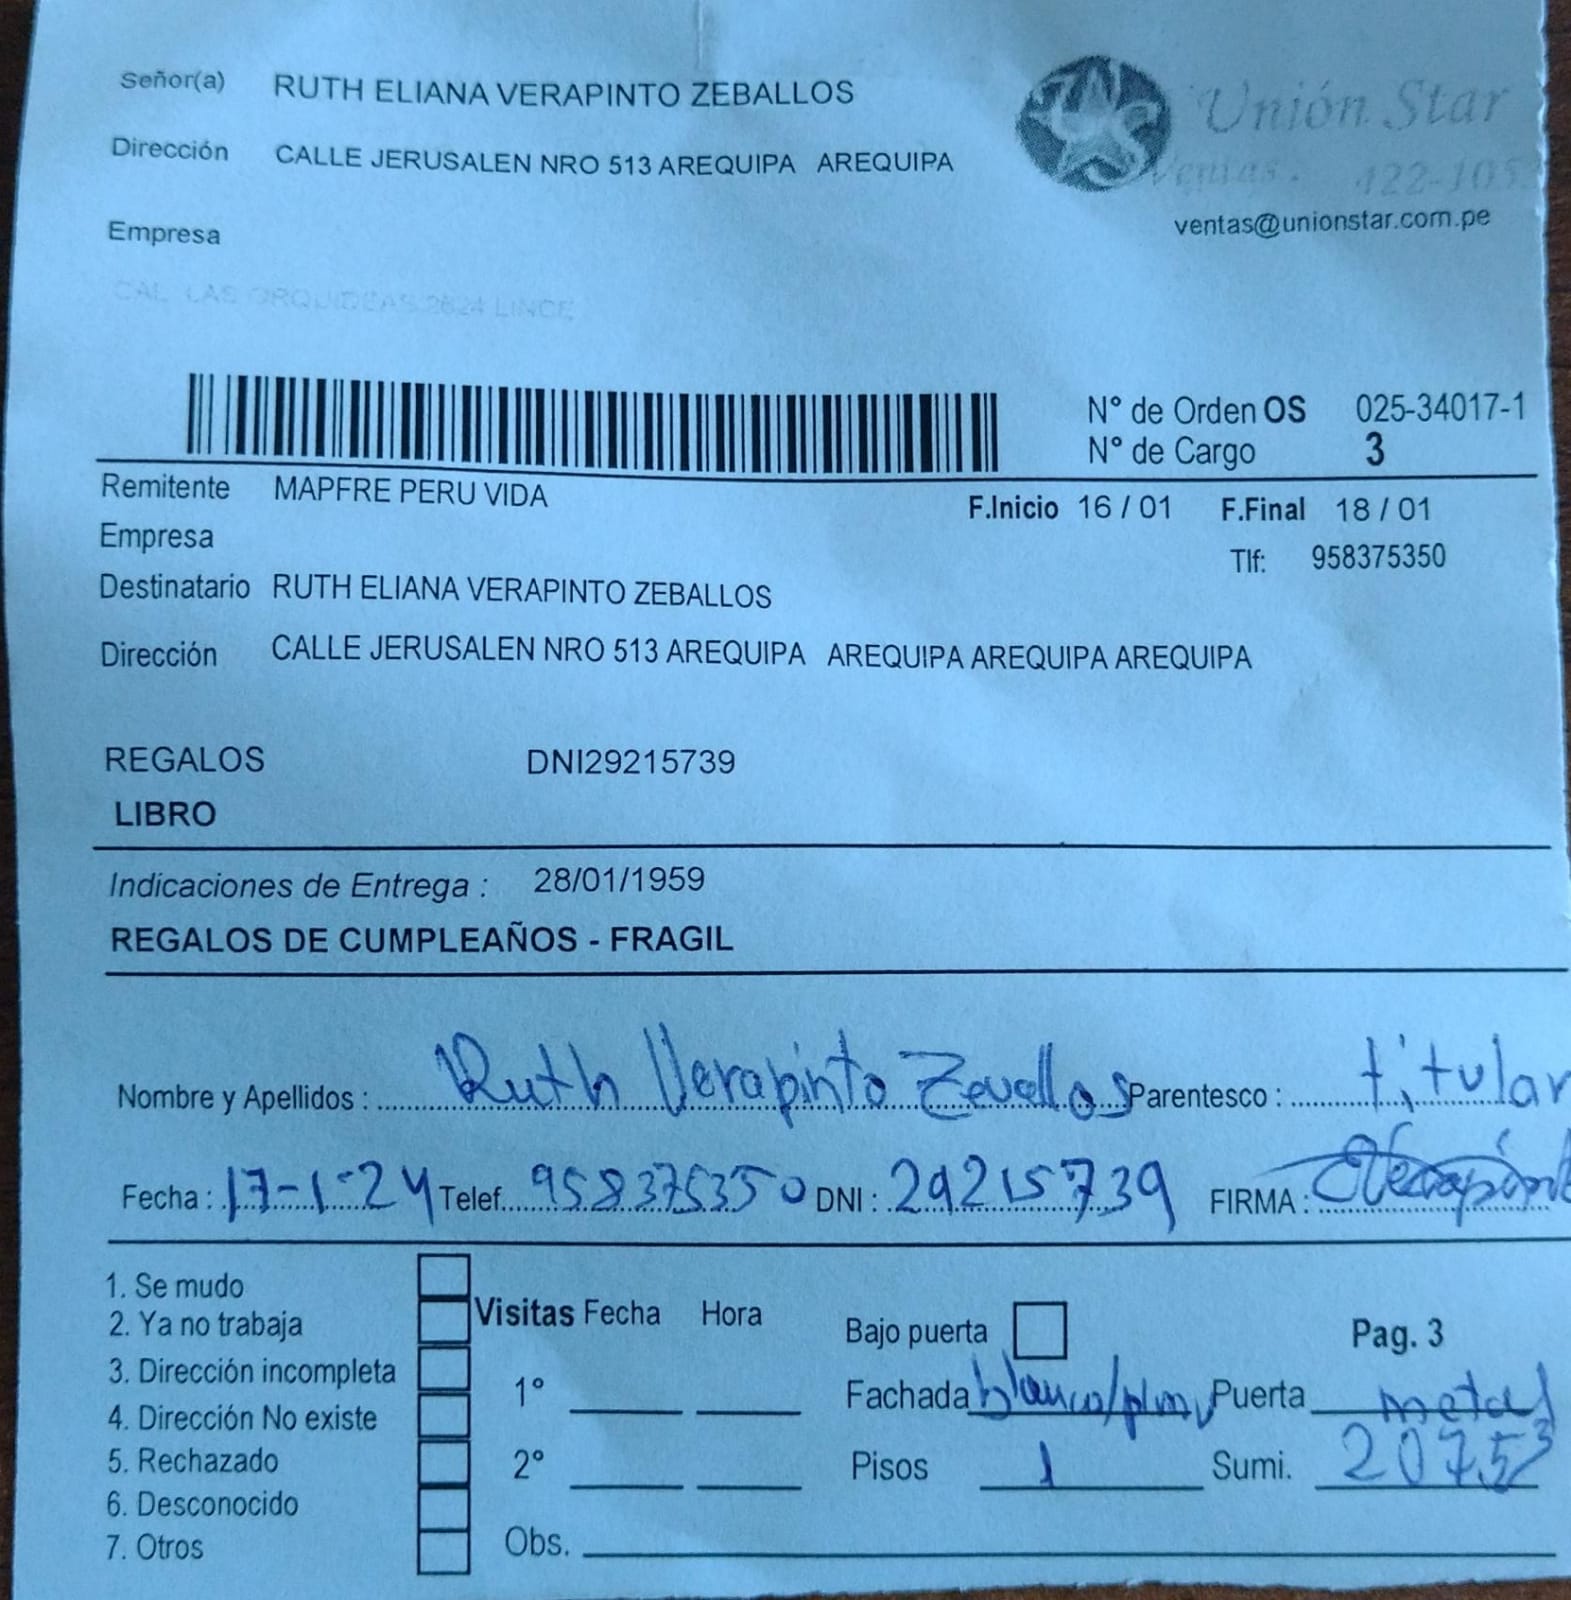 Señor(a) RUTH ELIANA VERAPINTO ZEBALLOS
Unión Star
Dirección CALLE JERUSALEN NRO 513 AREQUIPA AREQUIPA
Ventas. 422-105
ventas@unionstar.com.pe
Empresa
CAL LAS ORQUIDEAS 2624 LINCE
N° de Orden OS 025-34017-1
N° de Cargo 3
Remitente MAPFRE PERU VIDA
F.Inicio 16 / 01 F.Final 18 / 01
Empresa
Tlf: 958375350
Destinatario RUTH ELIANA VERAPINTO ZEBALLOS
Dirección CALLE JERUSALEN NRO 513 AREQUIPA AREQUIPA AREQUIPA AREQUIPA
REGALOS DNI29215739
LIBRO
Indicaciones de Entrega : 28/01/1959
REGALOS DE CUMPLEAÑOS - FRAGIL
Nombre y Apellidos : Ruth Verapinto Zevallos Parentesco : titular
Fecha : 17-1-24 Telef. 958375350 DNI : 29215739 FIRMA :
1. Se mudo
2. Ya no trabaja
3. Dirección incompleta
4. Dirección No existe
5. Rechazado
6. Desconocido
7. Otros
Visitas Fecha Hora
1°
2°
Obs.
Bajo puerta
Pag. 3
Fachada blanco/plm Puerta metal
Pisos 1 Sumi. 20753